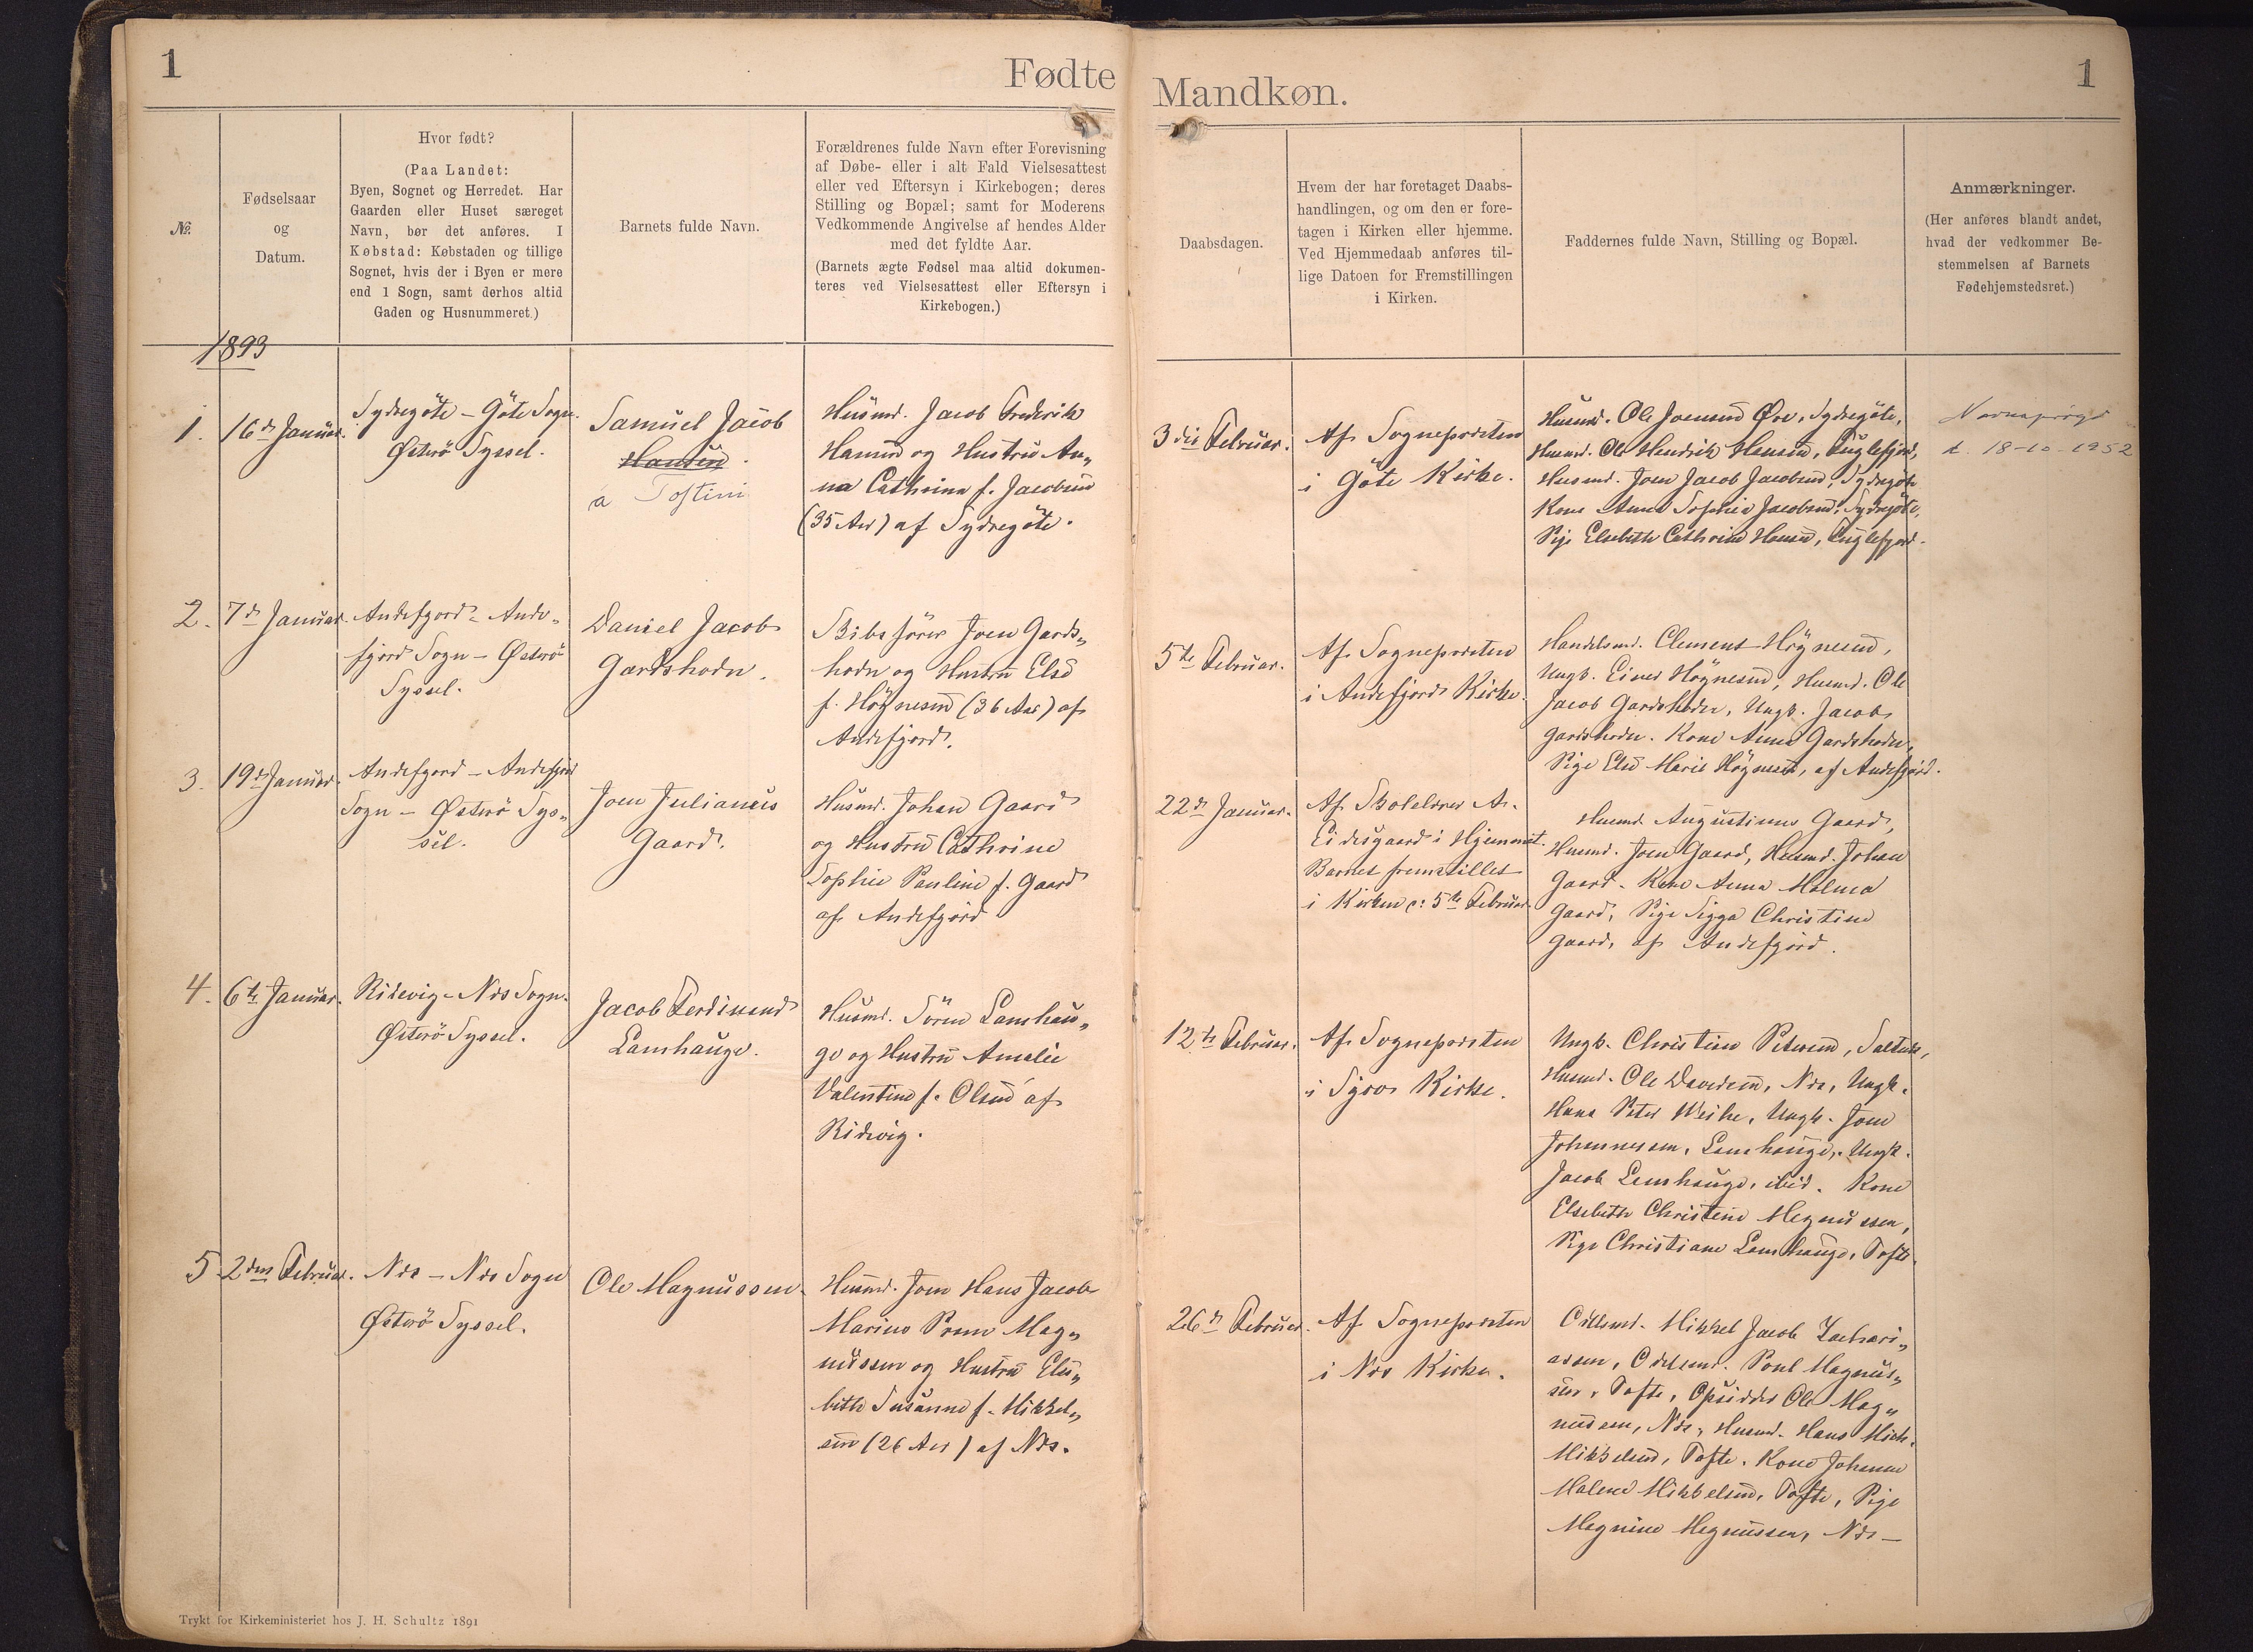 1
Fødte
№
Fødselsaar
og
Datum.
Hvor født?
(Paa Landet:
Byen, Sognet og Herredet. Har
Gaarden eller Huset særeget
Navn, bør det anføres. I
Købstad: Købstaden og tillige
Sognet, hvis der i Byen er mere
end 1 Sogn, samt derhos altid
Gaden og Husnummeret.)
Barnets fulde Navn.
Forældrenes fulde Navn efter Forevisning
af Døbe- eller i alt Fald Vielsesattest
eller ved Eftersyn i Kirkebogen; deres
Stilling og Bopæl; samt for Moderens
Vedkommende Angivelse af hendes Alder
med det fyldte Aar.
(Barnets ægte Fødsel maa altid dokumen-
teres ved Vielsesattest eller Eftersyn i
Kirkebogen.)
1893
1.
16de Januar.
Sydregöte – Göte Sogn.
Österö Syssel.
Samuel Jacob
Hansen.
á Toftini
Husmd. Jacob Frederik
Hansen og Hustru An„
na Cathrine f. Jacobsen
(35 Aar) af Sydregöte.
2.
7de Januar.
Andefjord – Ande„
fjord Sogn – Österö
Syssel.
Daniel Jacob
Gardshodn.
Skibsförer Joen Gards„
hodn og Hustru Else
f. Högnesen (36 Aar) af
Andefjord.
3.
19de Januar.
Andefjord – Andefjord
Sogn – Österö Sys„
sel.
Joen Julianus
Gaard.
Husmd. Johan Gaard
og Hustru Cathrine
Sophie Pauline f. Gaard
af Andefjord
4.
6te Januar.
Ridevig – Næs Sogn.
Österö Syssel.
Jacob Ferdinand
Lamhauge.
Husmd. Sören Lamhau„
ge og Hustru Amalie
Valentine f. Olsen af
Ridevig.
5
2den Februar.
Næs – Næs Sogn
Österö Syssel.
Ole Magnussen.
Husmd. Joen Hans Jacob
Marius Poem Mag„
nussen og Hustru Else„
beth Susanne f. Mikkel„
sen (26 Aar) af Næs.
Trykt for Kirkeministeriet hos J. H. Schultz 1891
Mandkøn.
1
Daabsdagen.
Hvem der har foretaget Daabs-
handlingen, og om den er fore-
tagen i Kirken eller hjemme.
Ved Hjemmedaab anføres til-
lige Datoen for Fremstillingen
i Kirken.
Faddernes fulde Navn, Stilling og Bopæl.
Anmærkninger.
(Her anføres blandt andet,
hvad der vedkommer Be-
stemmelsen af Barnets
Fødehjemstedsret.)
3die Februar.
Af Sognepræsten
i Göte Kirke.
Husmd. Ole Joensen Öre, Sydregöte,
Husmd. Ole Hendrik Hansen, Fuglefjord,
Husmd. Joen Jacob Jacobsen, Sydregöte
Kone Anne Sophie Jacobsen, Sydregöte,
Pige Elsebeth Cathrine Hansen, Fuglefjord.
d. 18-10-1952
5te Februar.
Af Sognepræsten
i Andefjords Kirke.
Handelsmd. Clement Högnesen,
Ungk. Einer Högnesen, Husmd. Ole
Jacob Gardshodn, Ungk. Jacob
Gardshodn. Kone Anne Gardshodn,
Pige Else Marie Högnesen, af Andefjord.
22de Januar.
Af Skolelærer A.
Eidesgaard i Hjemmet.
Barnet fremstillet
i Kirken d: 5te Februar
Husmd. Augustinus Gaard,
Husmd. Joen Gaard, Husmd. Johan
Gaard. Kone Anna Malena
Gaard, Pige Sigga Christine
Gaard, af Andefjord.
12te Februar.
Af Sognepræsten
i Kirke.
Ungk. Christian Petersen, Saltnæs,
Husmd. Ole Davidsen, Næs, Ungk.
Hans Peter Weihe, Ungk. Joen
Johannesen, Lamhauge, Ungk.
Jacob Lamhauge, ibid. Kone
Elsebeth Christine Magnussen,
Pige Christiane Lamhauge, Tofte.
26de Februar.
Af Sognepræsten
i Næs Kirke.
Odelsmd. Mikkel Jacob Zachari„
assen, Odelsmd. Poul Magnus„
sen, Tofte, Opsidder Ole Mag„
nussen, Næs, Husmd. Hans
Mikkelsen, Tofte. Kone Johanne
Malene Mikkelsen, Tofte, Pige
Magnine Magnussen, Næs –